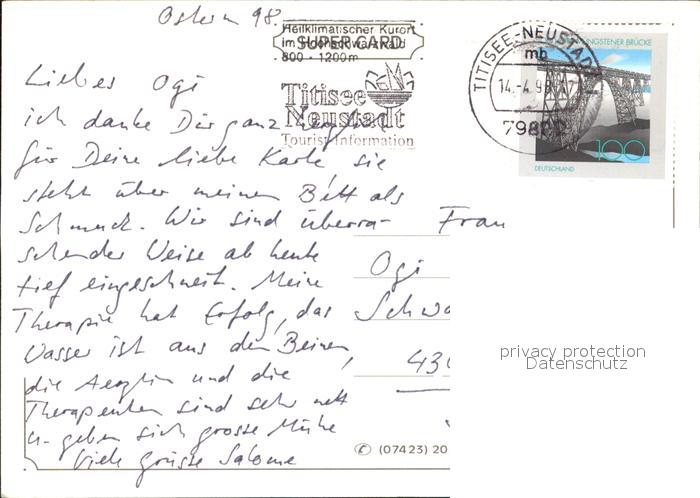 Ostern 98.
Liebes Ogi
ich danke Dir ganz
für Deine liebe Karte sie
steht über meinem Bett als
Schmuck. Wir sind überra-
schender Weise ab heute
tief eingeschneit. Meine
Therapie hat Erfolg, das
Wasser ist aus den Beinen,
die Aerztin und die
Therapeuten sind sehr nett
u. geben sich grosse Mühe
Viele grüsse Salome
Heilklimatischer Kurort
im Hochschwarzwald
800 - 1200m
SUPER CARD
Titisee
Neustadt
Tourist Information
TITISEE-NEUSTADT
mb
14.-4.98
MÜNGSTENER BRÜCKE
100
DEUTSCHLAND
Frau
Ogi
Schwa
430
privacy protection
Datenschutz
✆ (07423) 20